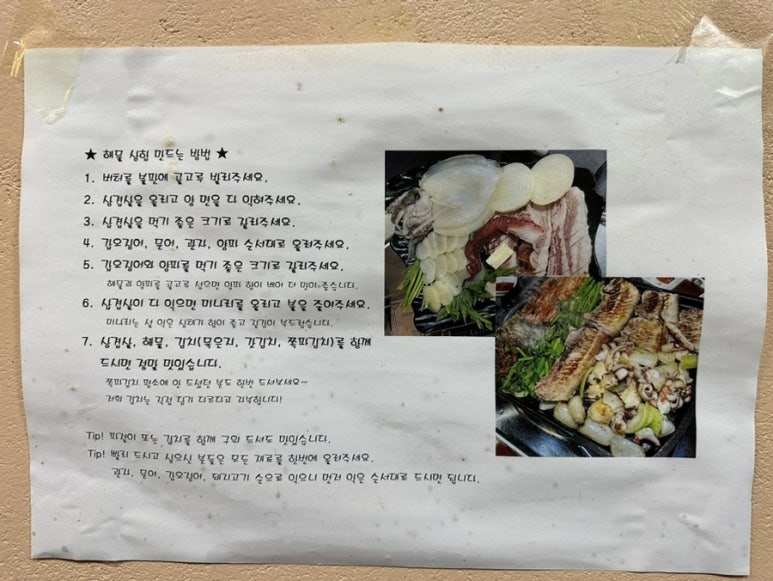 ★ 해물 삼합 만드는 방법 ★
1. 버터를 불판에 골고루 발라주세요.
2. 삼겹살을 올리고 한 면을 다 익혀주세요.
3. 삼겹살을 먹기 좋은 크기로 잘라주세요.
4. 갑오징어, 문어, 관자, 양파 순서대로 올려주세요.
5. 갑오징어와 양파를 먹기 좋은 크기로 잘라주세요.
해물과 양파를 골고루 섞으면 양파 향이 배어 더 맛이 좋습니다.
6. 삼겹살이 다 익으면 미나리를 올리고 불을 줄여주세요.
미나리는 설 익은 상태가 향이 좋고 식감이 부드럽습니다.
7. 삼겹살, 해물, 김치(묵은지, 갓김치, 쪽파김치)를 함께
드시면 정말 맛있습니다.
쪽파김치 평소에 안 드셨던 분도 한번 드셔보세요~
저희 김치는 직접 담가 다르다고 자부합니다!
Tip! 파절이 또는 김치를 함께 구워 드셔도 맛있습니다.
Tip! 빨리 드시고 싶으신 분들은 모든 재료를 한번에 올려주세요.
관자, 문어, 갑오징어, 돼지고기 순으로 익으니 먼저 익은 순서대로 드시면 됩니다.